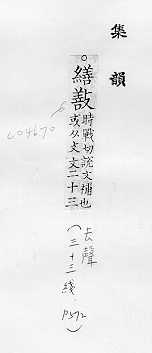 集韻
○繕敾
時戰切說文補也
或从文文二十三
去聲
(三十三線 P572)
C04670